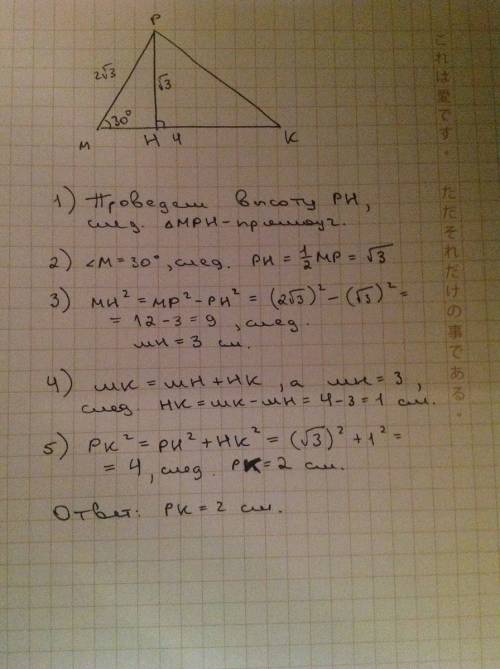 P
2√3
√3
30°
M
H
4
K
1) Проведем высоту PH,
след. △MPH - прямоуг.
2) ∠M = 30°, след. PH = 1/2 MP = √3
3) MH² = MP² - PH² = (2√3)² - (√3)² =
= 12 - 3 = 9, след.
MH = 3 см.
4) MK = MH + HK, а MH = 3,
след. HK = MK - MH = 4 - 3 = 1 см.
5) PK² = PH² + HK² = (√3)² + 1² =
= 4, след. PK = 2 см.
Ответ: PK = 2 см.
これは愛です。 ただそれだけの事である。